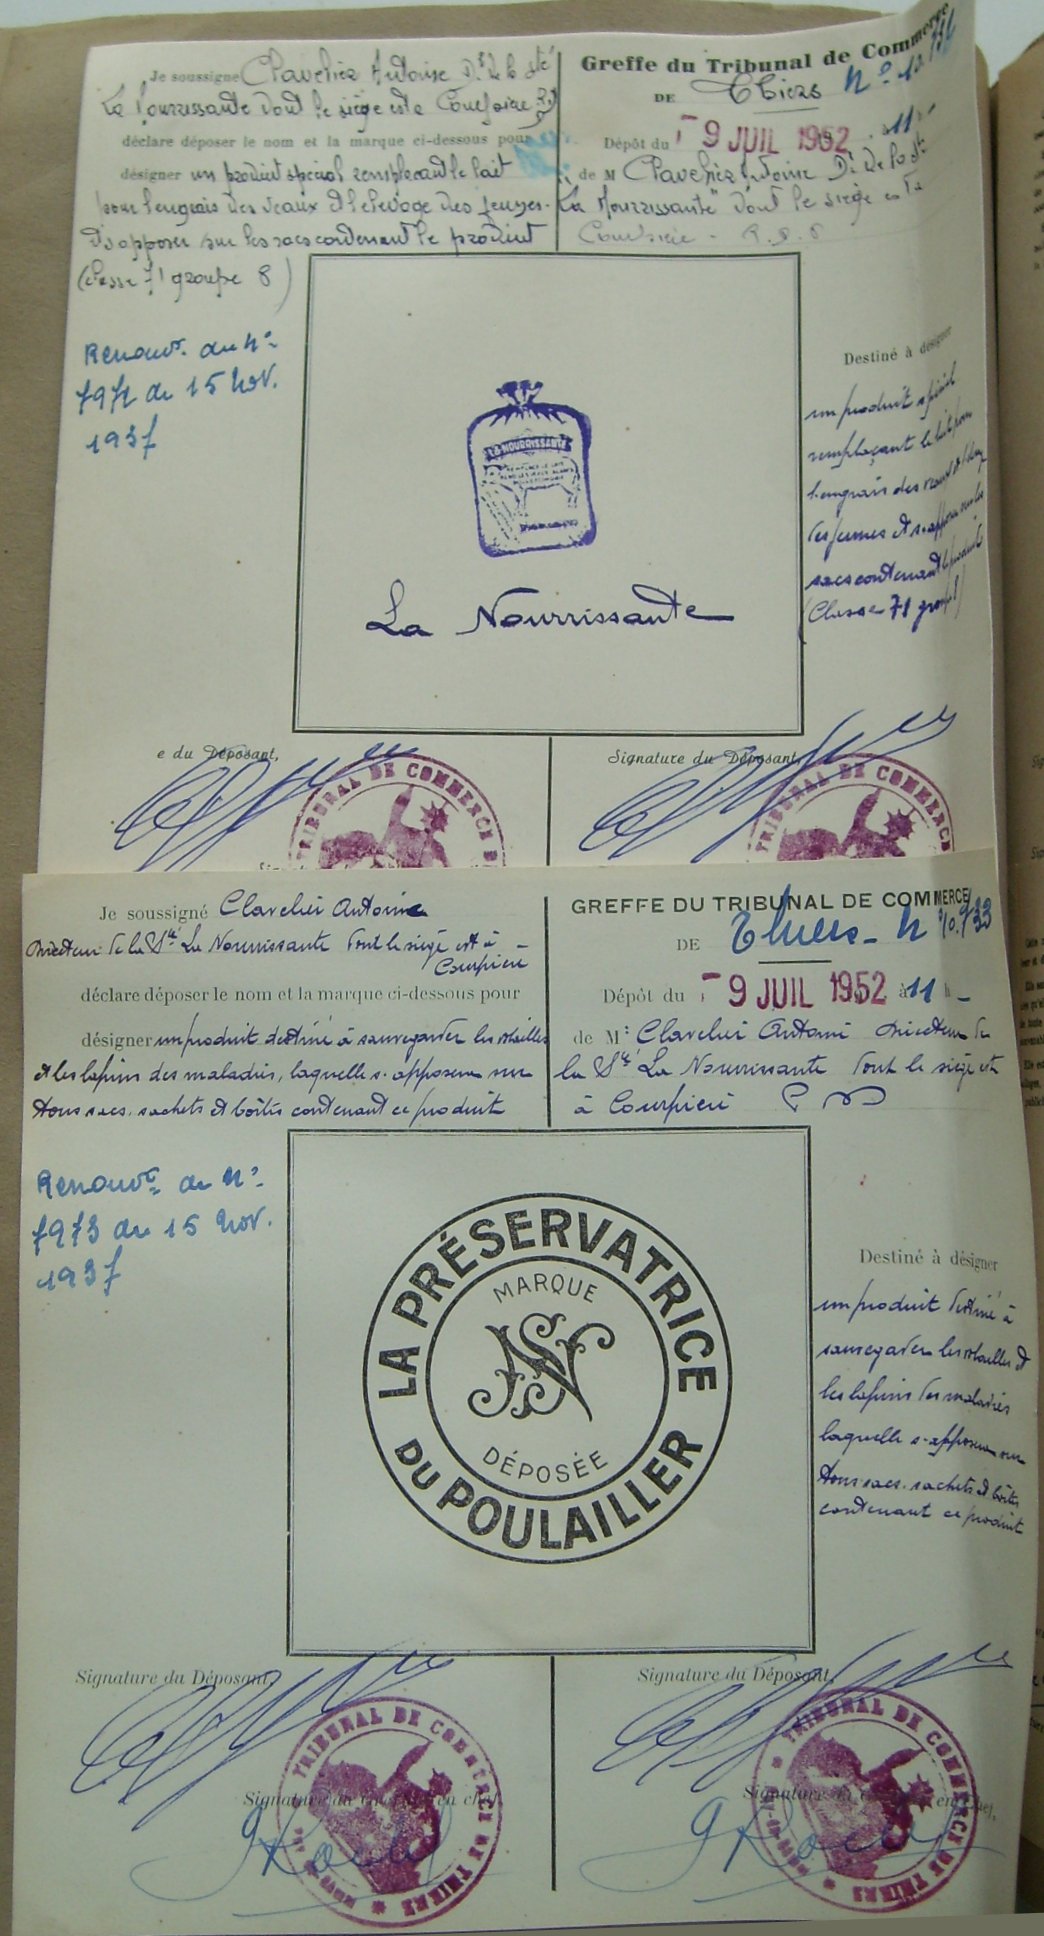 Je soussigné Clavelier Antoine Dr de la Sté
La Nourrissante dont le siège est à Courpière
déclare déposer le nom et la marque ci-dessous pour
désigner un produit spécial remplaçant le lait
pour l'engrais des veaux et l'élevage des jeunes.
Et s'apposer sur les sacs contenant le produit
(classe 71 groupe 8)
Renouvt. du N°
7972 du 15 Nov.
1937
Greffe du Tribunal de Commerce
DE Thiers N° 10.732
Dépôt du 9 JUIL 1952 11
de M Clavelier Antoine Dr de la Sté
"La Nourrissante" dont le siège est à
Courpière - P. d. D
LA NOURRISSANTE
La Nourrissante
Destiné à désigner
un produit spécial
remplaçant le lait pour
l'engrais des veaux et l'élevage
des jeunes et s'apposer sur les
sacs contenant le produit
(Classe 71 groupe 8)
e du Déposant,
Signature du Déposant,
TRIBUNAL DE COMMERCE
TRIBUNAL DE COMMERCE
Je soussigné Clavelier Antoine
Directeur de la Sté La Nourrissante dont le siège est à
Courpière
déclare déposer le nom et la marque ci-dessous pour
désigner un produit destiné à sauvegarder les volailles
et les lapins des maladies, laquelle s'apposera sur
tous sacs, sachets et boîtes contenant ce produit
Renouvt. du N°
7973 du 15 Nov.
1937
GREFFE DU TRIBUNAL DE COMMERCE
DE Thiers - N° 10.733
Dépôt du 9 JUIL 1952 à 11 h -
de M: Clavelier Antoine Directeur de
la Sté La Nourrissante dont le siège est
à Courpière P D
LA PRÉSERVATRICE
MARQUE
DÉPOSÉE
DU POULAILLER
Destiné à désigner
un produit destiné à
sauvegarder les volailles et
les lapins des maladies
laquelle s'apposera sur
tous sacs, sachets et boîtes
contenant ce produit
Signature du Déposant,
Signature du Déposant,
TRIBUNAL DE COMMERCE DE THIERS
TRIBUNAL DE COMMERCE DE THIERS
Signature du en chef,
Signature du en chef,